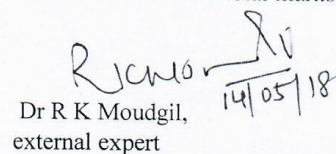 14/05/18
Dr R K Moudgil,
external expert